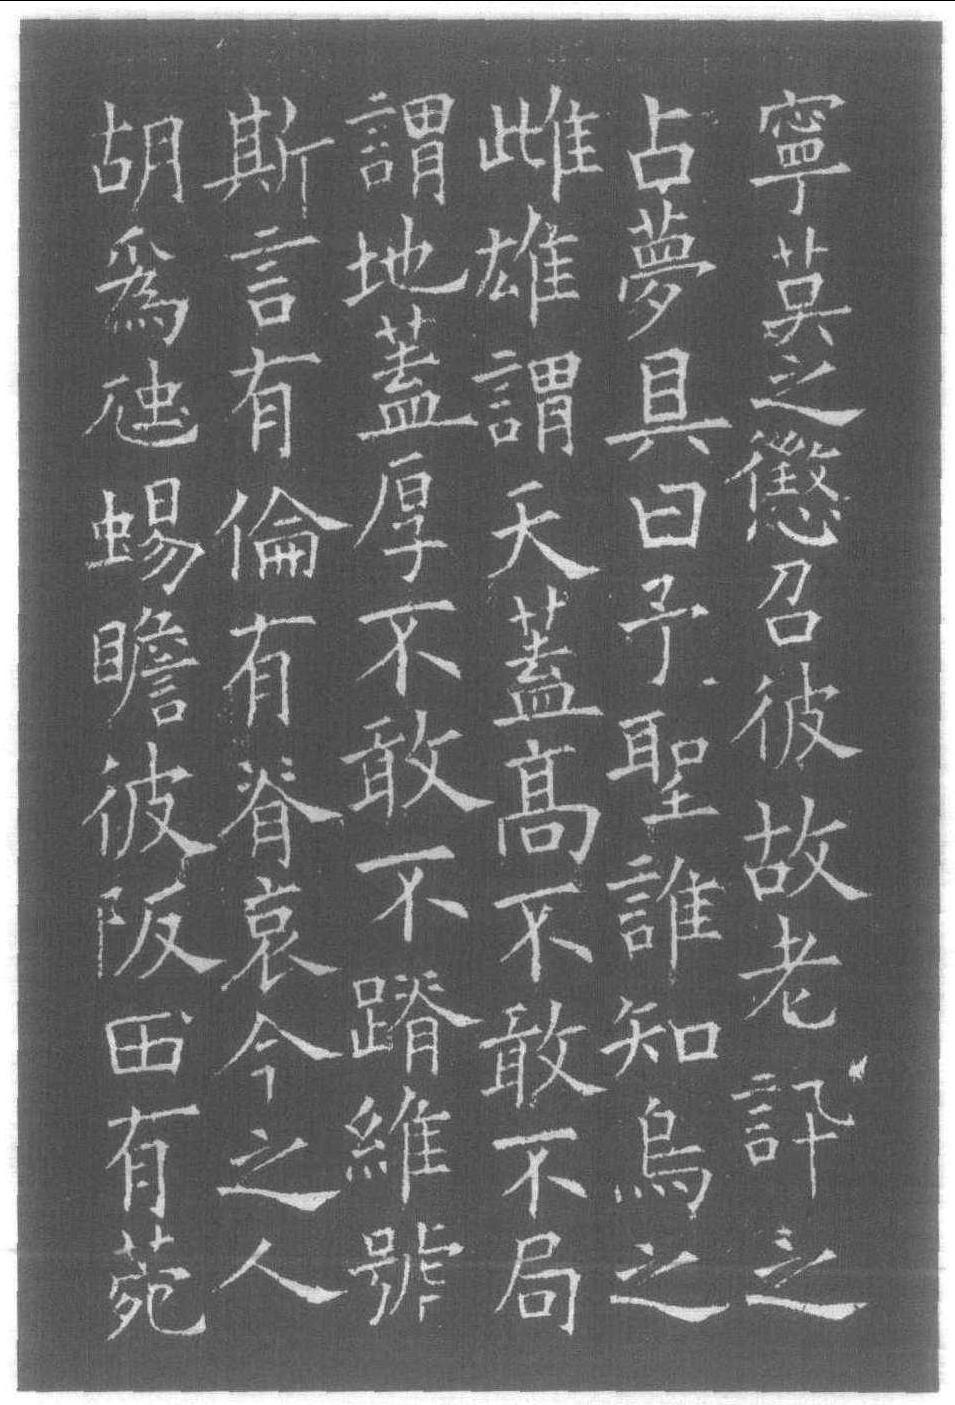 寧莫之懲召彼故老訊之
占夢具曰予聖誰知烏之
雌雄謂天蓋髙不敢不局
謂地蓋厚不敢不蹐維號
斯言有倫有脊哀今之人
胡爲虺蜴瞻彼阪田有菀